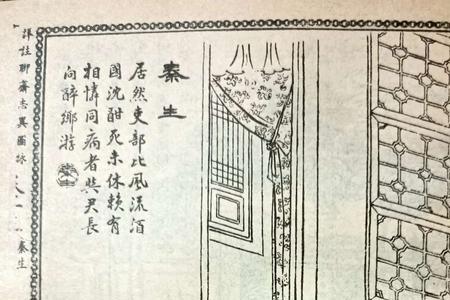 秦生
居然吏部比風流酒
國沈酣死未休賴有
相憐同病者與君長
向醉鄉游
秦生
詳註聊齋志異圖詠 秦生